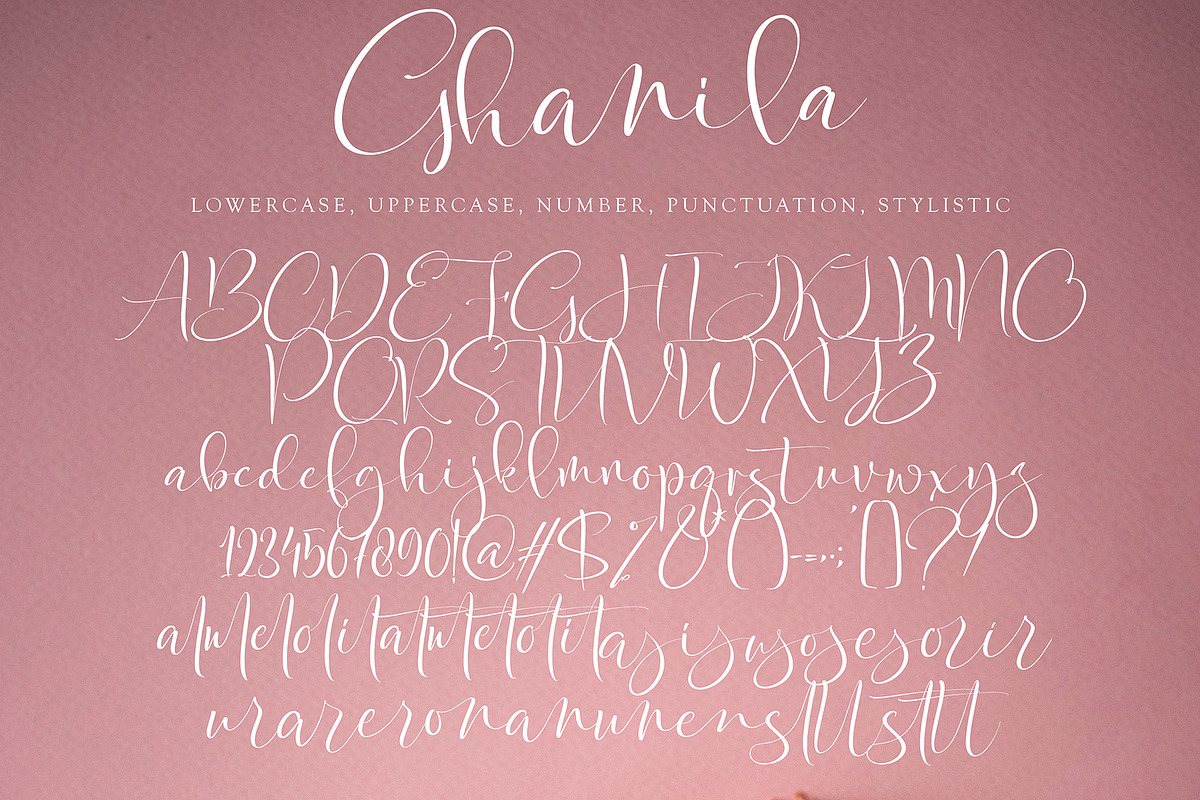 Ghanila
LOWERCASE, UPPERCASE, NUMBER, PUNCTUATION, STYLISTIC
ABCDEFGHIJKLMNO
PQRSTUVWXYZ
abcdefghijklmnopqrstuvwxyz
1234567890!@#$%&*()--=,.:;'[]?/
alulelolilatutetotitasisusosesorir
urareronanunensllltstltt